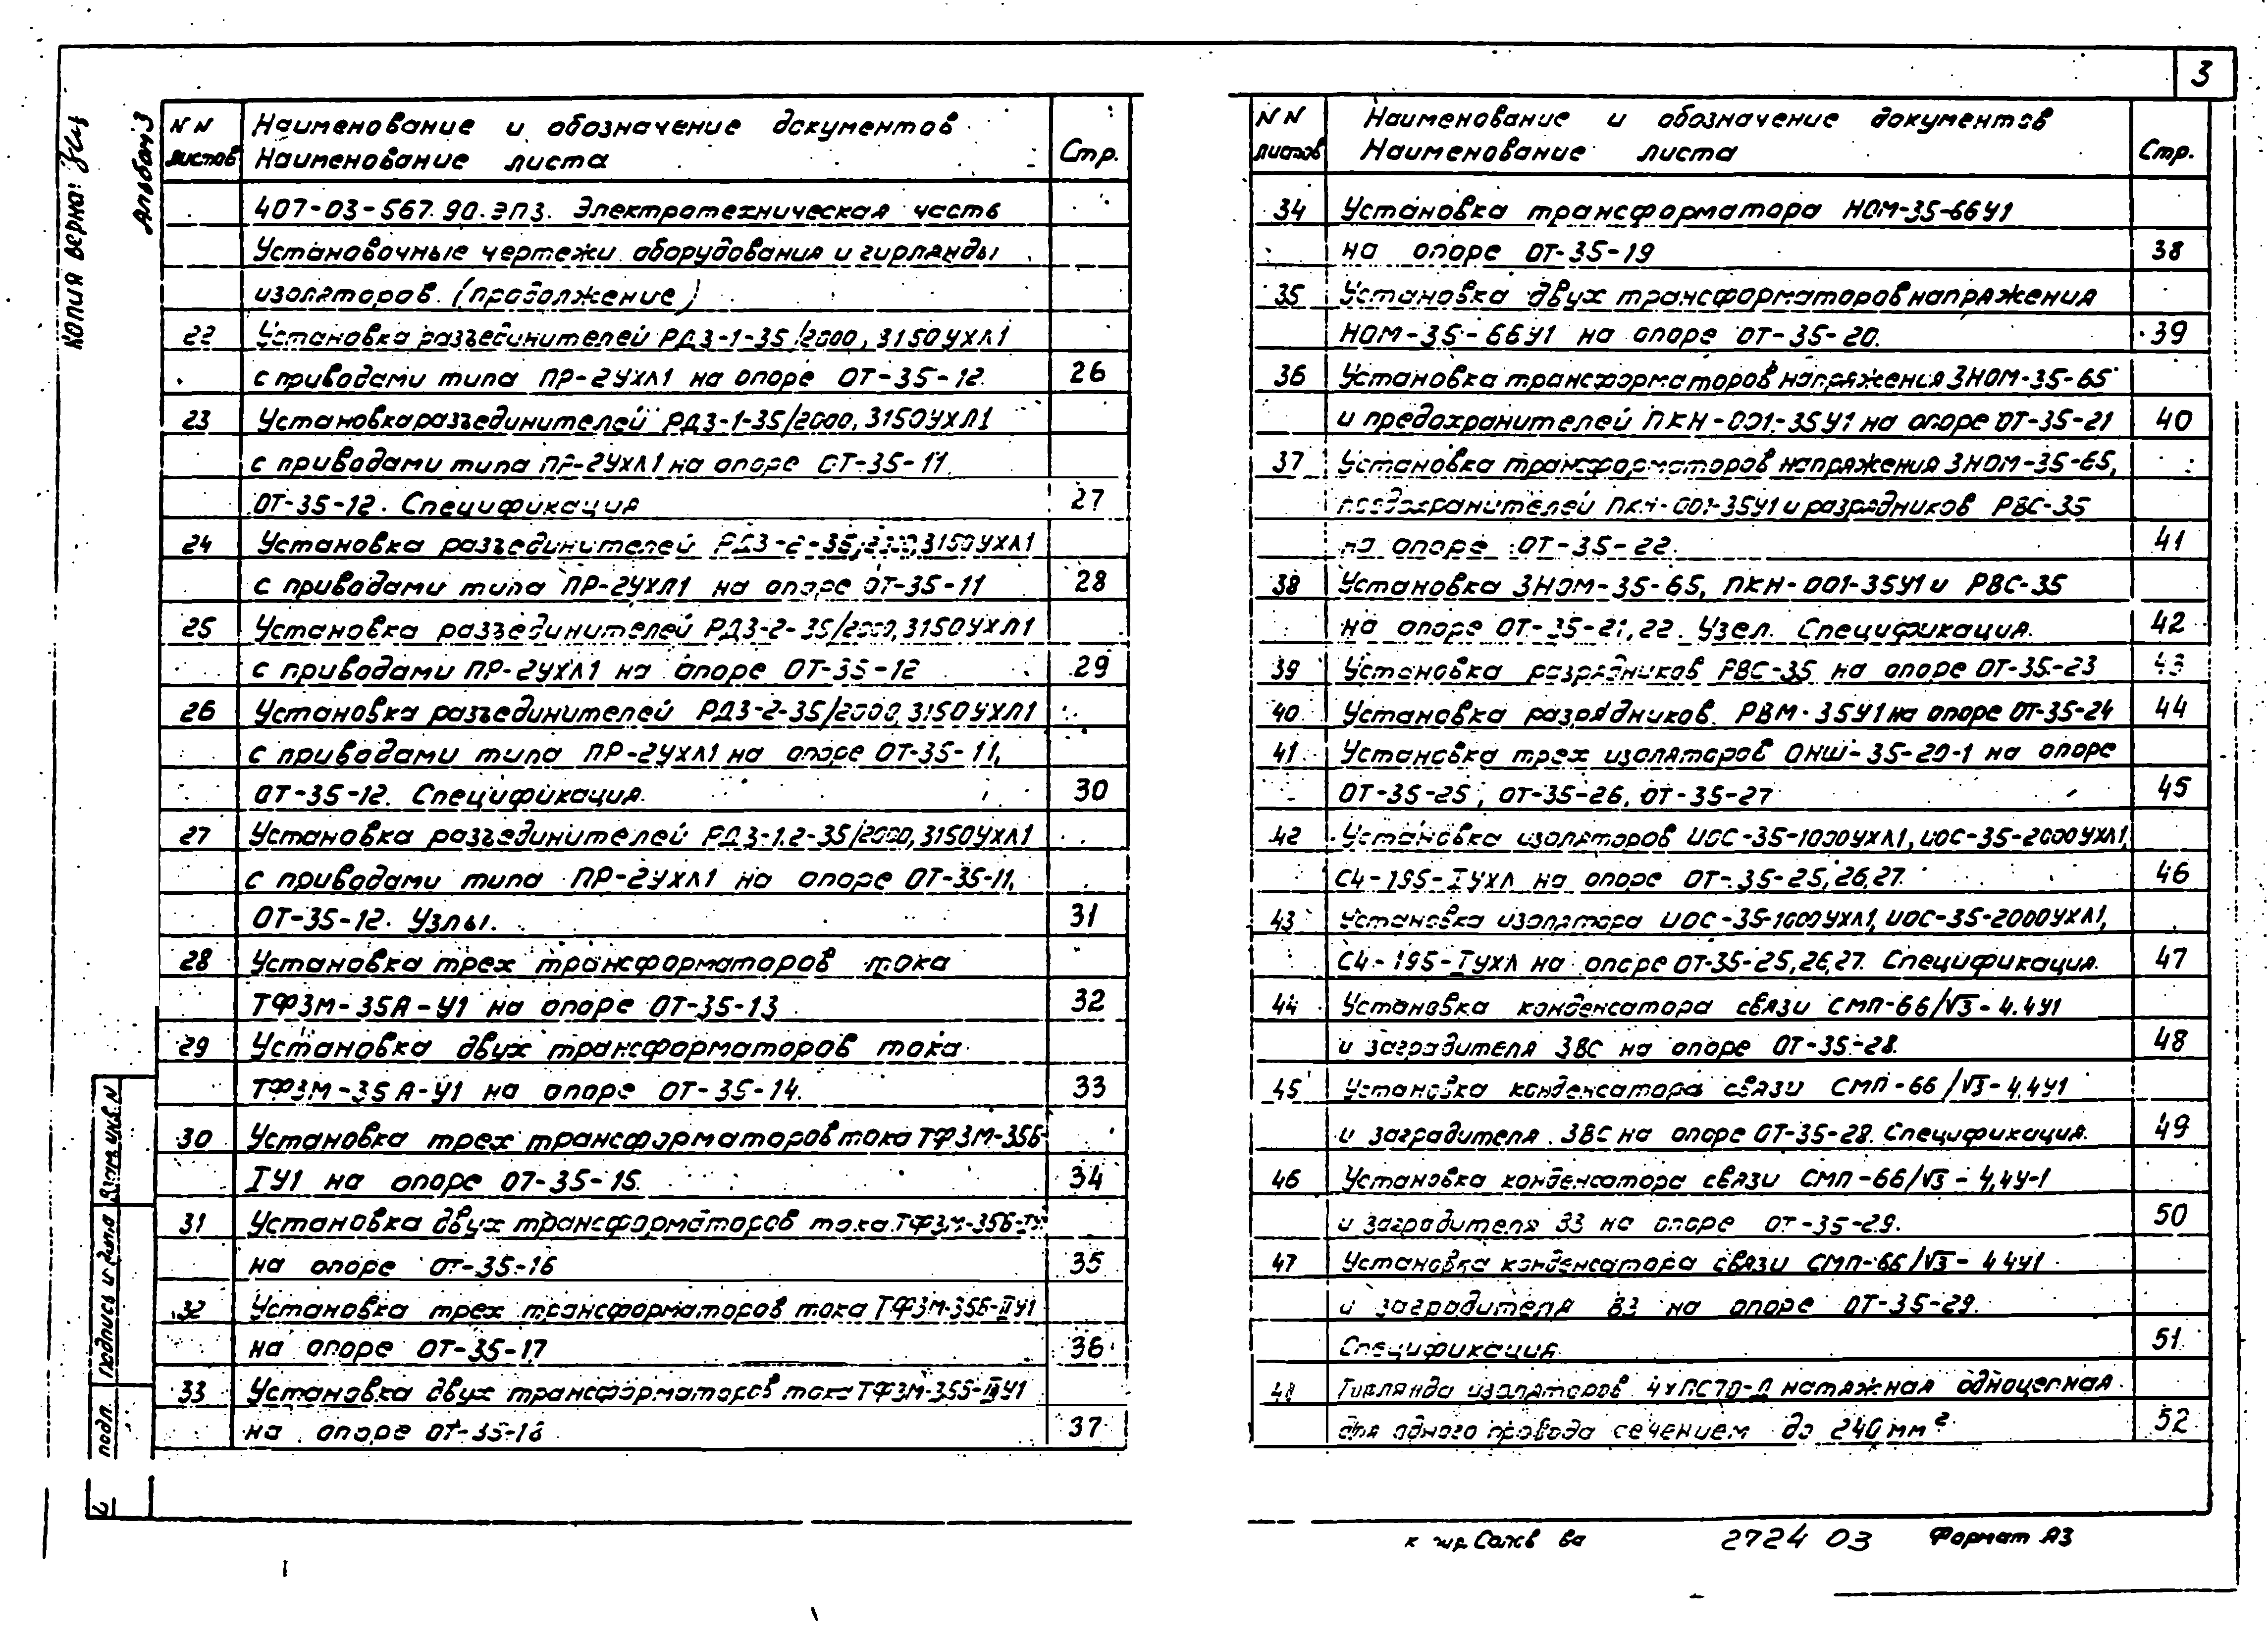 3
Копия верна:
Альбом 3
NN листов
Наименование и обозначение документов
Наименование листа
Стр.
407-03-567.90.ЭП3. Электротехническая часть
Установочные чертежи оборудования и гирлянды
изоляторов. (продолжение)
22 Установка разъединителей РДЗ-1-35/2000, 3150УХЛ1
с приводами типа ПР-2УХЛ1 на опоре ОТ-35-12. 26
23 Установка разъединителей РДЗ-1-35/2000, 3150УХЛ1
с приводами типа ПР-2УХЛ1 на опоре ОТ-35-11,
ОТ-35-12. Спецификация 27
24 Установка разъединителей РДЗ-2-35/2000, 3150УХЛ1
с приводами типа ПР-2УХЛ1 на опоре ОТ-35-11 28
25 Установка разъединителей РДЗ-2-35/2000, 3150УХЛ1
с приводами ПР-2УХЛ1 на опоре ОТ-35-12 29
26 Установка разъединителей РДЗ-2-35/2000, 3150УХЛ1
с приводами типа ПР-2УХЛ1 на опоре ОТ-35-11,
ОТ-35-12. Спецификация. 30
27 Установка разъединителей РДЗ-1.2-35/2000, 3150УХЛ1
с приводами типа ПР-2УХЛ1 на опоре ОТ-35-11,
ОТ-35-12. Узлы. 31
28 Установка трех трансформаторов тока
ТФЗМ-35А-У1 на опоре ОТ-35-13 32
29 Установка двух трансформаторов тока
ТФЗМ-35А-У1 на опоре ОТ-35-14. 33
30 Установка трех трансформаторов тока ТФЗМ-35Б-
IУ1 на опоре ОТ-35-15. 34
31 Установка двух трансформаторов тока ТФЗМ-35Б-IУ1
на опоре ОТ-35-16 35
32 Установка трех трансформаторов тока ТФЗМ-35Б-IIУ1
на опоре ОТ-35-17 36
33 Установка двух трансформаторов тока ТФЗМ-35Б-IIУ1
на опоре ОТ-35-18 37
NN листов
Наименование и обозначение документов
Наименование листа
Стр.
34 Установка трансформатора НОМ-35-66У1
на опоре ОТ-35-19 38
35 Установка двух трансформаторов напряжения
НОМ-35-66У1 на опоре ОТ-35-20. 39
36 Установка трансформаторов напряжения ЗНОМ-35-65
и предохранителей ПКН-001-35У1 на опоре ОТ-35-21 40
37 Установка трансформаторов напряжения ЗНОМ-35-65,
предохранителей ПКН-001-35У1 и разрядников РВС-35
на опоре ОТ-35-22. 41
38 Установка ЗНОМ-35-65, ПКН-001-35У1 и РВС-35
на опоре ОТ-35-21,22. Узел. Спецификация. 42
39 Установка разрядников РВС-35 на опоре ОТ-35-23 43
40 Установка разрядников РВМ-35У1 на опоре ОТ-35-24 44
41 Установка трех изоляторов ОНШ-35-20-1 на опоре
ОТ-35-25, ОТ-35-26, ОТ-35-27 45
42 Установка изоляторов ИОС-35-1000УХЛ1, ИОС-35-2000УХЛ1,
С4-195-IУХЛ на опоре ОТ-35-25,26,27. 46
43 Установка изолятора ИОС-35-1000УХЛ1, ИОС-35-2000УХЛ1,
С4-195-IУХЛ на опоре ОТ-35-25,26,27. Спецификация. 47
44 Установка конденсатора связи СМП-66/√3-4.4У1
и заградителя ЗВС на опоре ОТ-35-28. 48
45 Установка конденсатора связи СМП-66/√3-4,4У1
и заградителя ЗВС на опоре ОТ-35-28. Спецификация. 49
46 Установка конденсатора связи СМП-66/√3-4,4У-1
и заградителя ВЗ на опоре ОТ-35-29. 50
47 Установка конденсатора связи СМП-66/√3-4.4У1
и заградителя ВЗ на опоре ОТ-35-29.
Спецификация. 51
48 Гирлянда изоляторов 4хПС70-Д натяжная одноцепная
для одного провода сечением до 240 мм² 52
Взам. инв. N
Подпись и дата
подл.
2724 03
Формат А3